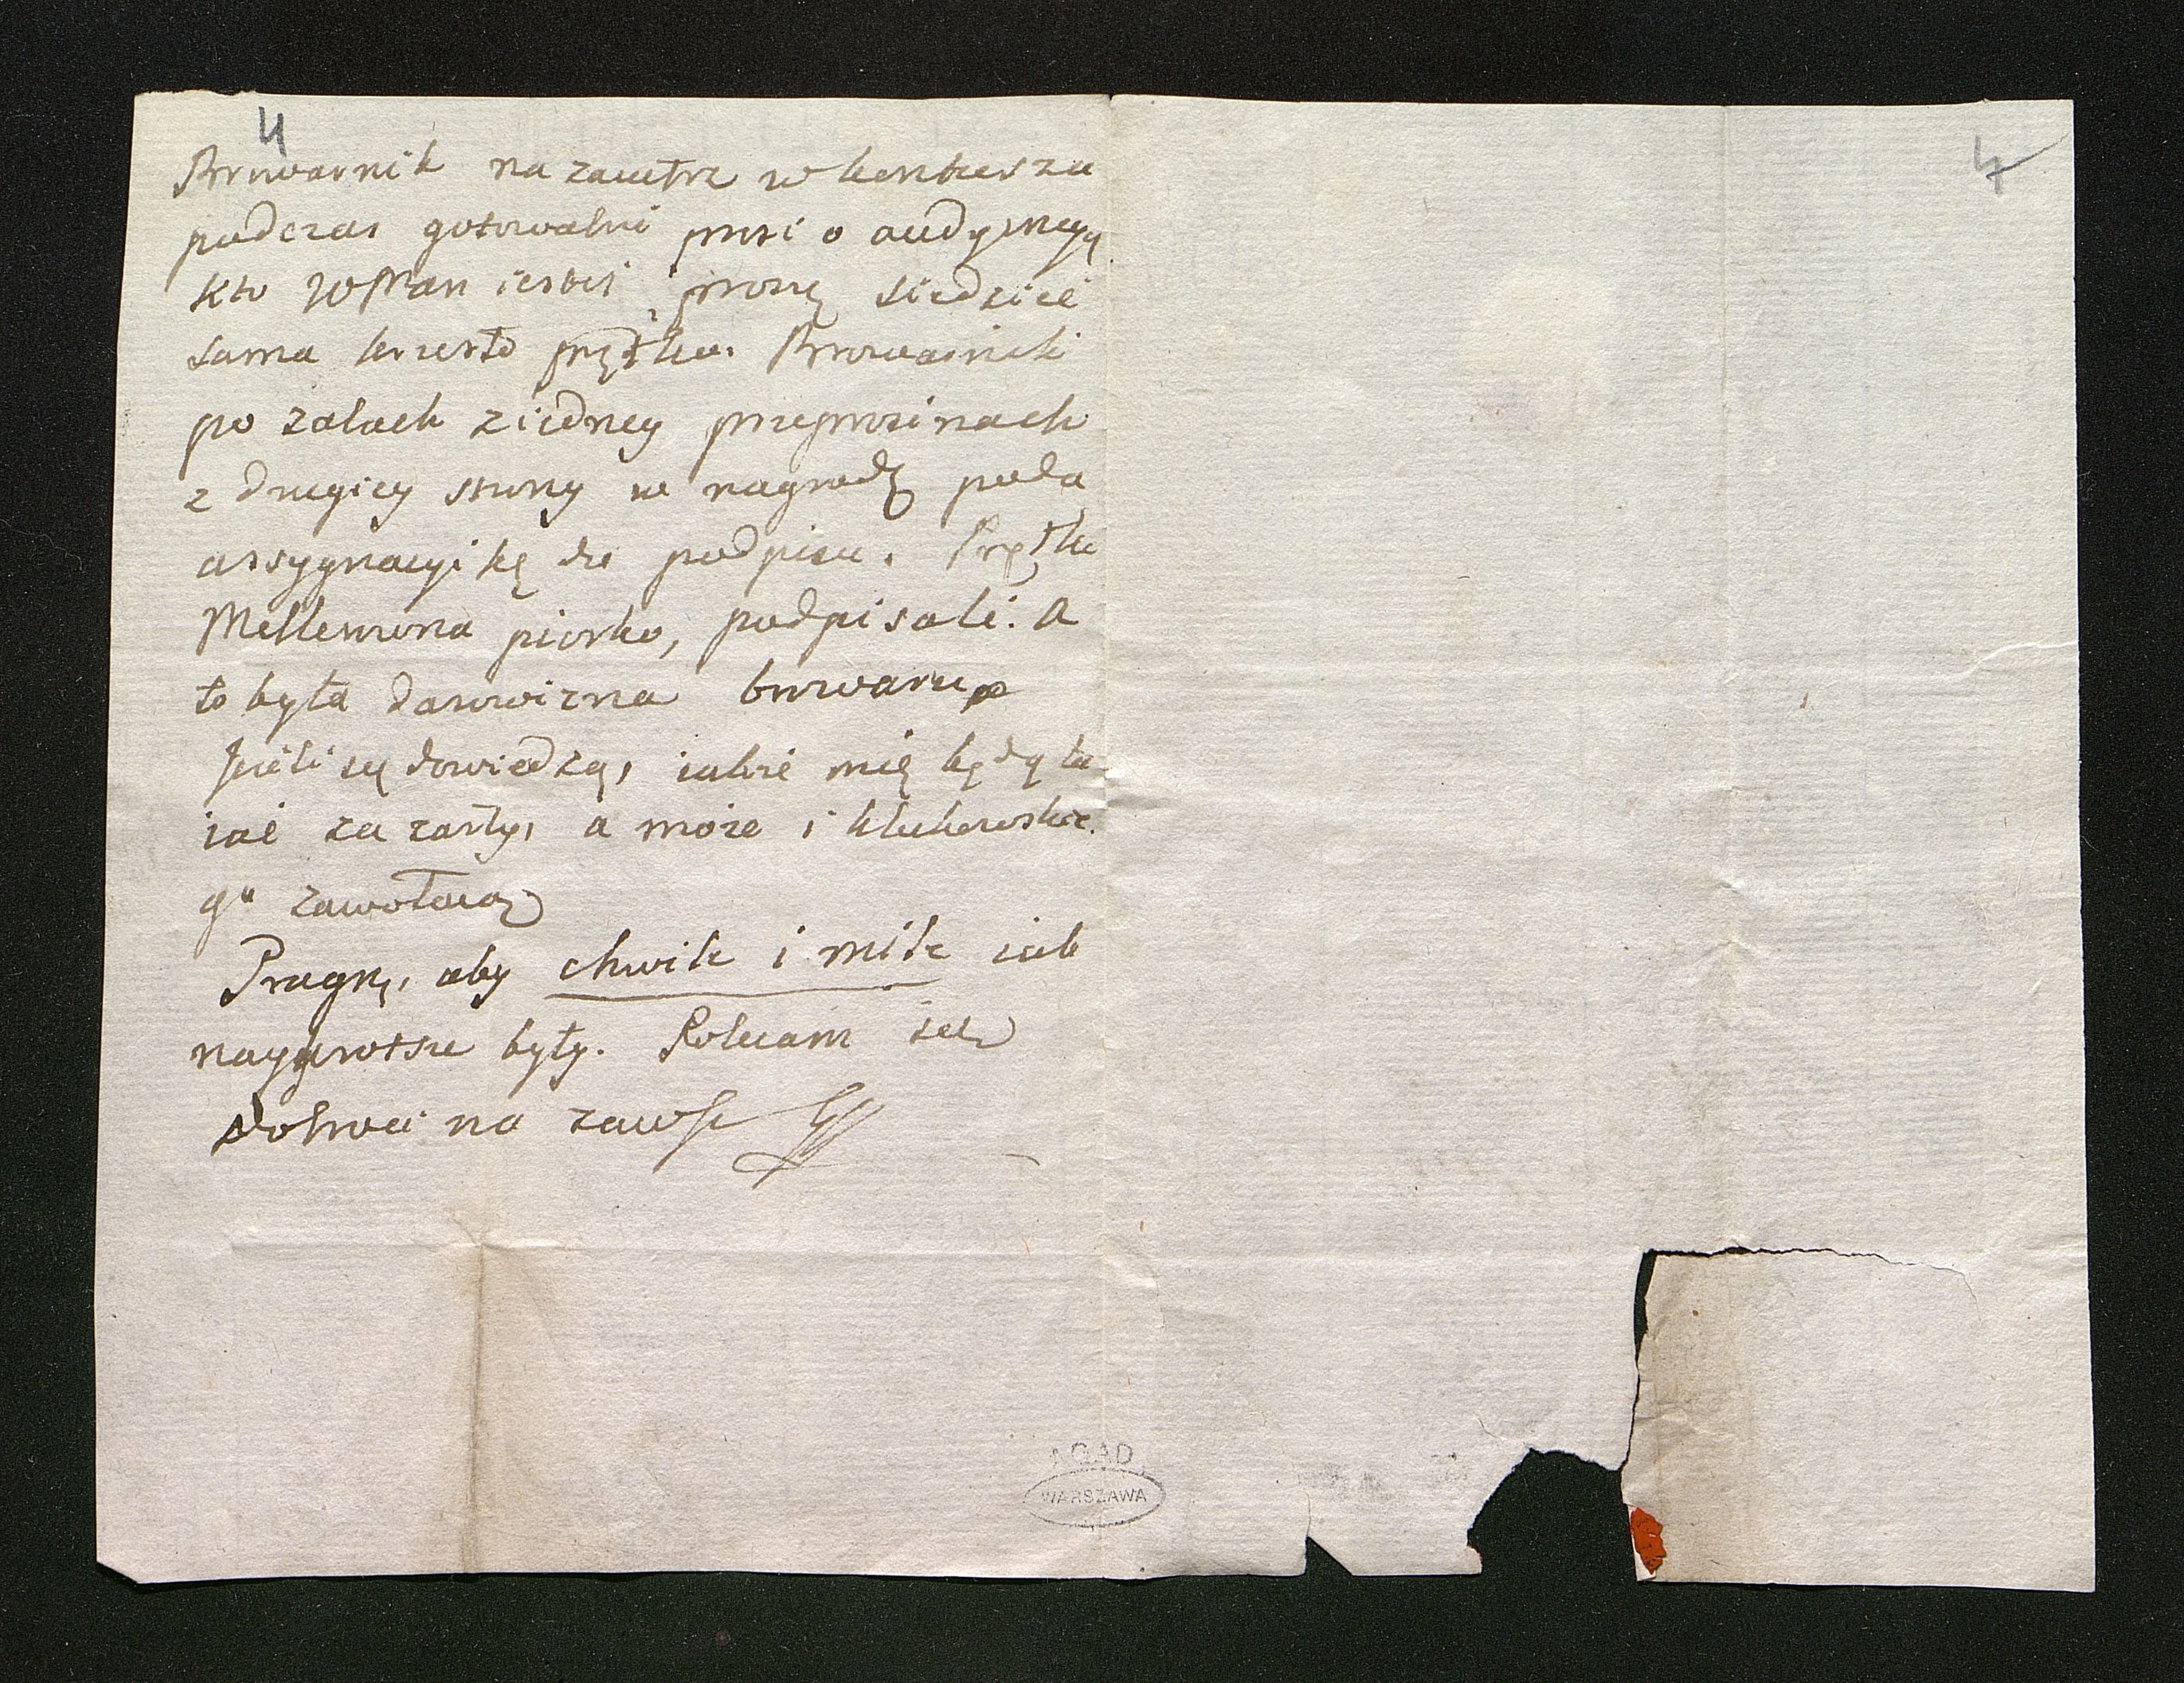 4
4
Browarnik nazaiutrz w kontuszu
podczas gotowalni prosi o audyencyą
Kto WPan iesteś, proszę siedzieć
sama krzesło prętko. Browarnik
po żalach z iedney przeprosinach
z drugiey strony w nagrodę poda
assygnacyikę do podpisu. Prętko
piorko, podpisali. A
to była darowizna browaru
Jeżeli się dowiedzą, iakże mię będą ła-
iać za żarty, a może i
go zawołaią
Pragnę, aby chwile i miłe iak
nayprotsze były. Polecam się
dobroci na zawsze
AGAD
WARSZAWA